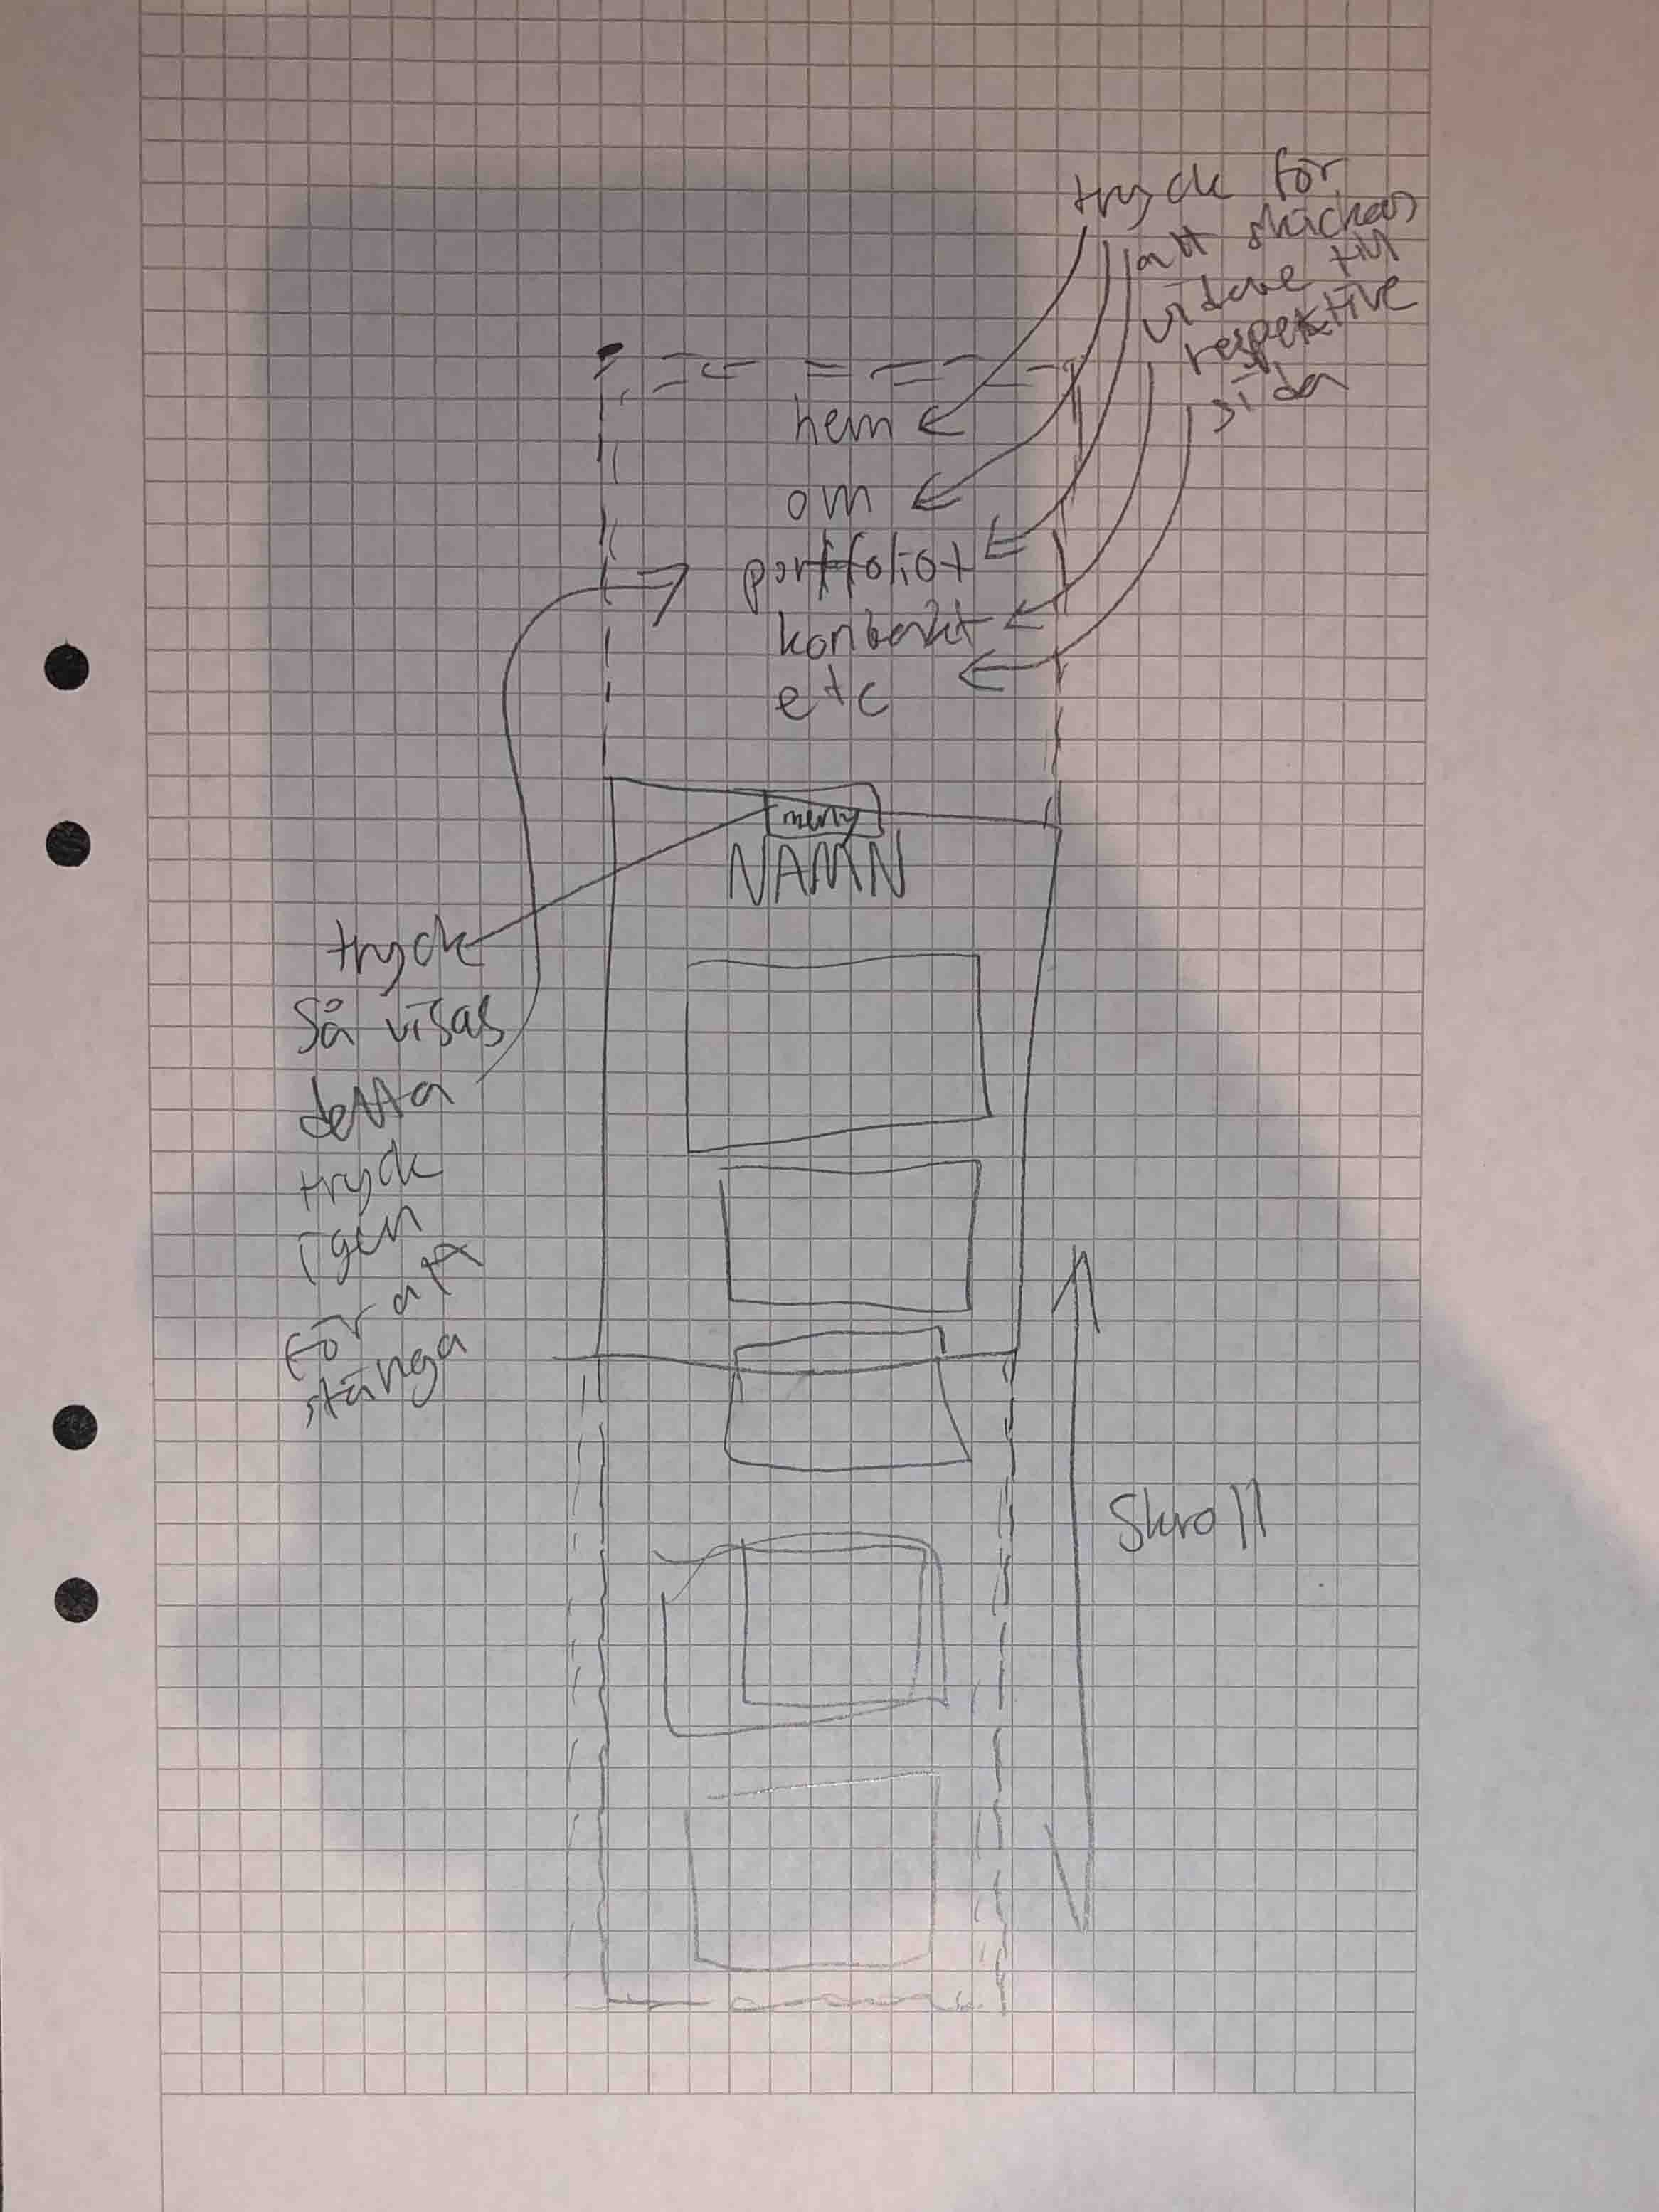 tryck för
att skickas
vidare till
respektive
sida
hem
om
portfoliot
kontakt
etc
meny
NAMN
tryck
så visas
detta
tryck
igen
för att
stänga
Skroll